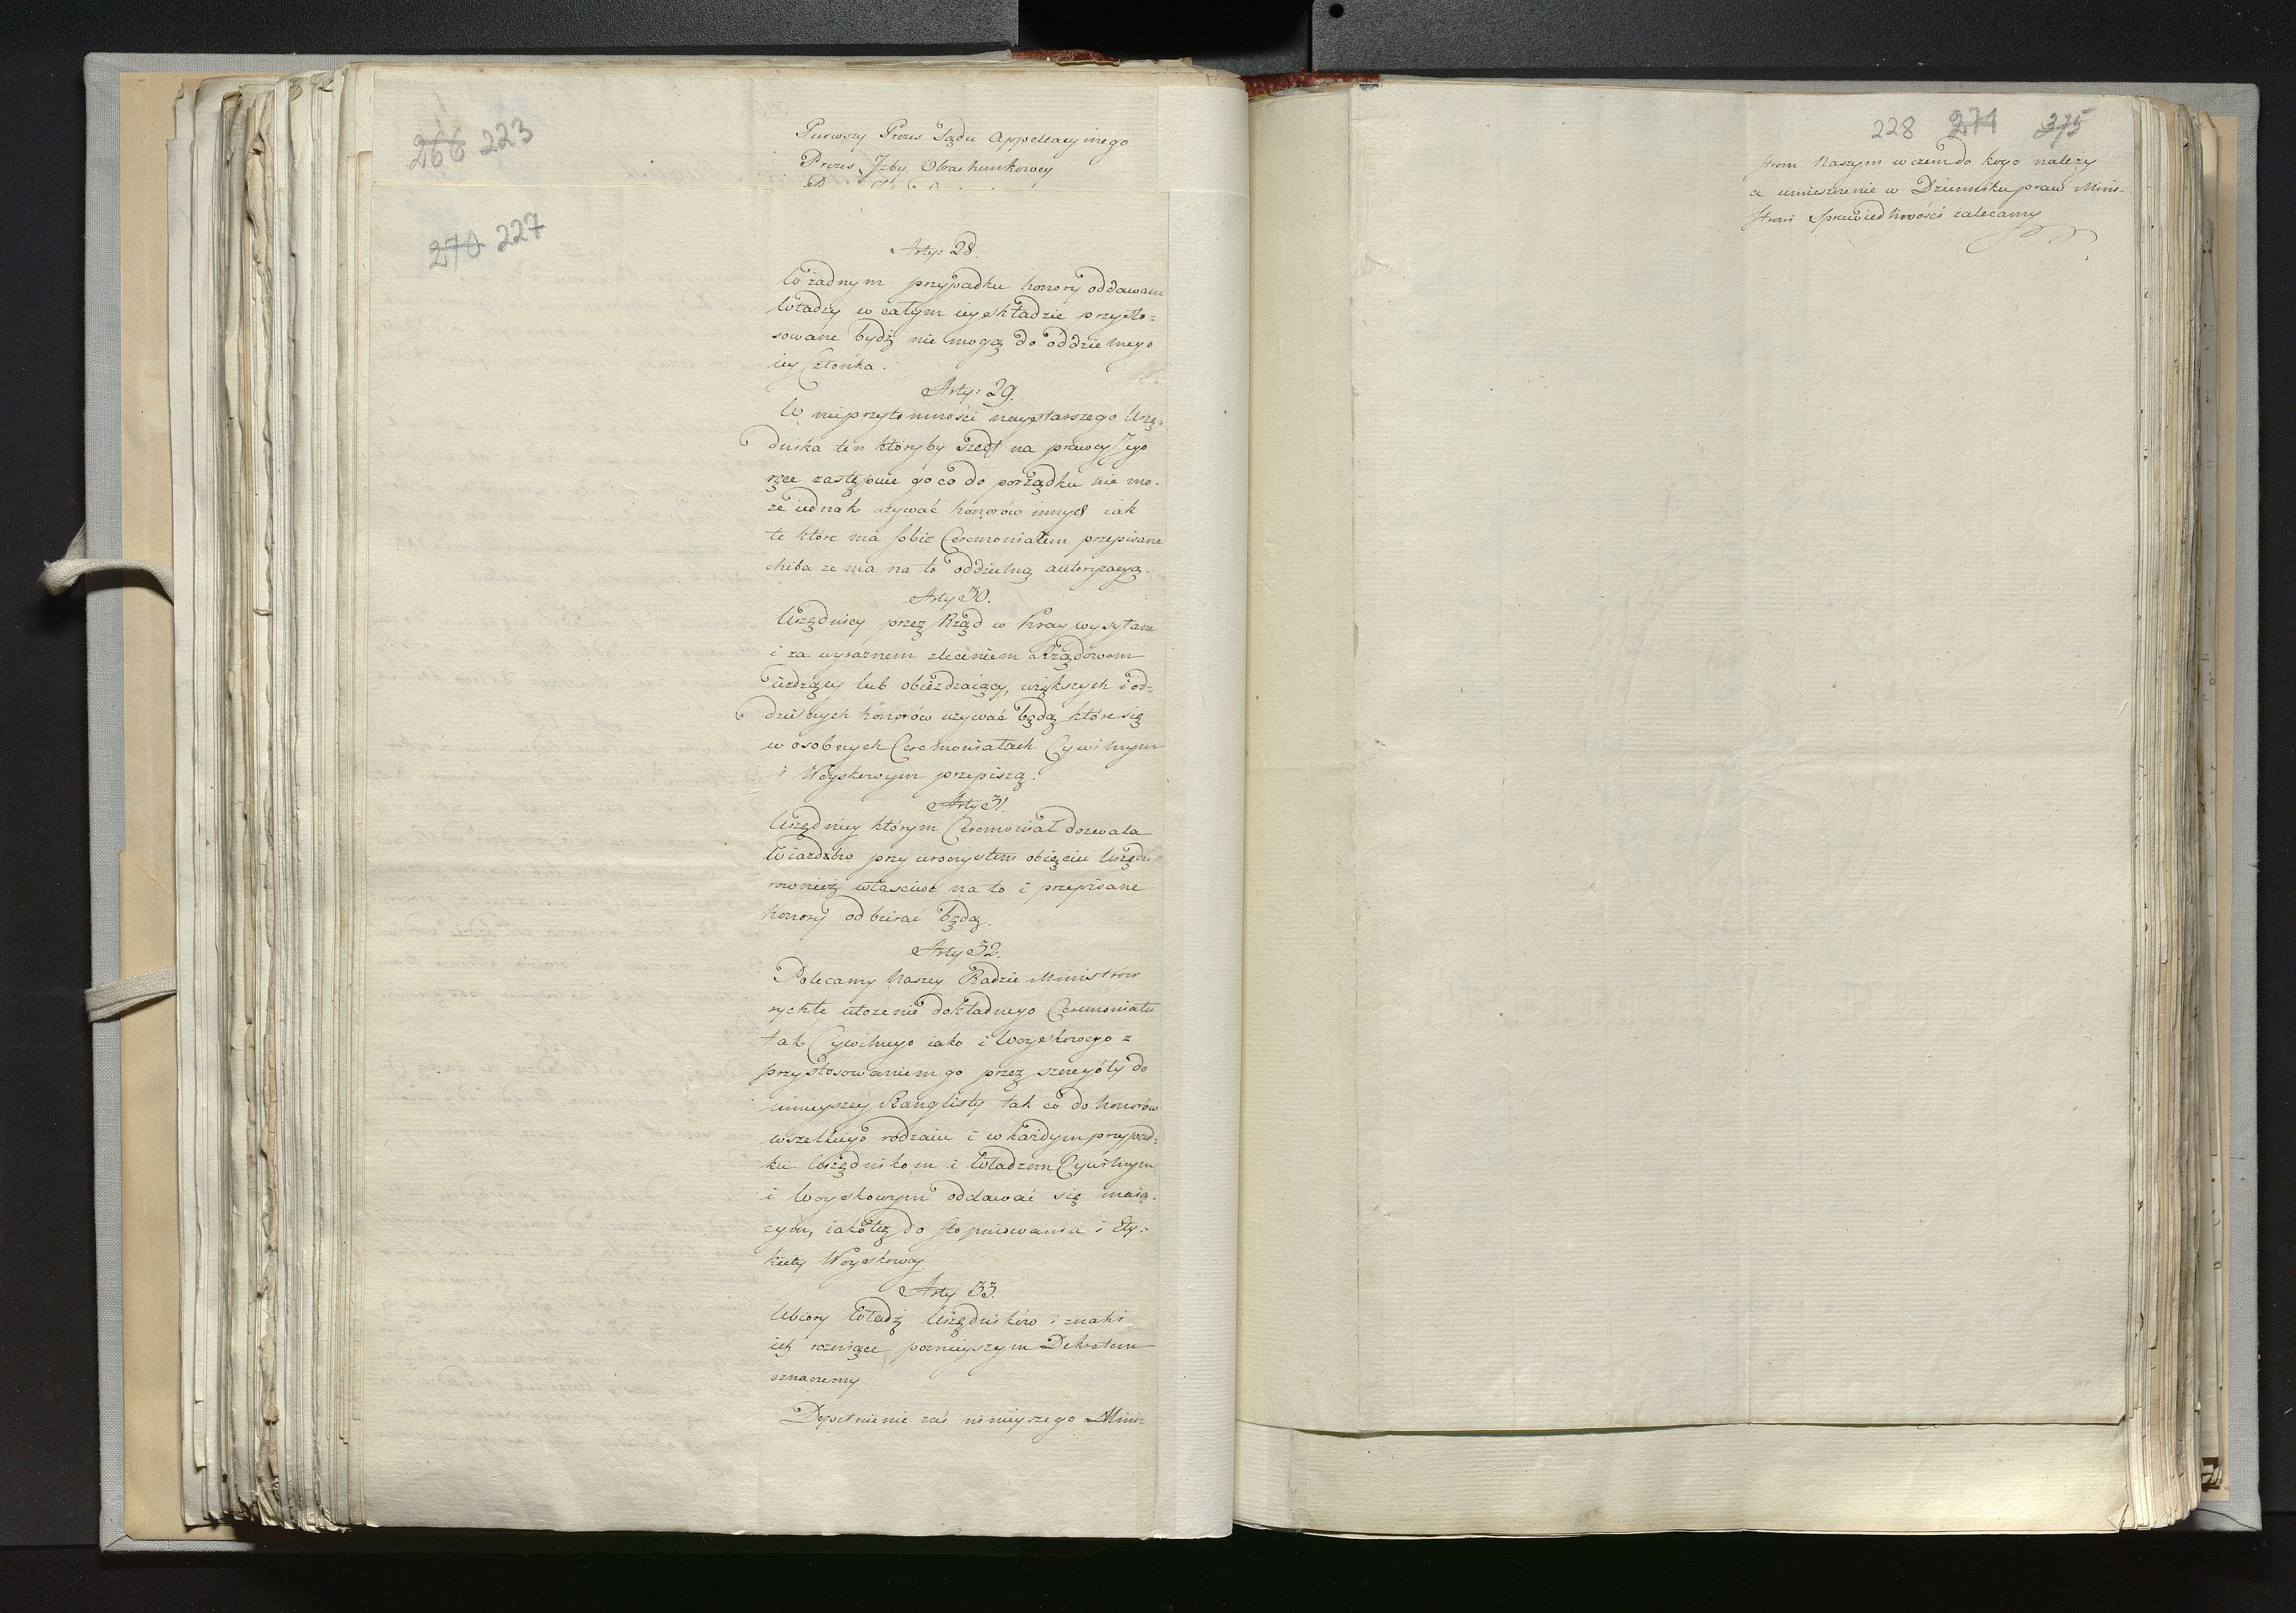 266 223
Pierwszy Prezes Sądu Appellacyinego
Prezes Izby Obrachunkowey
270 227
Arty: 28.
W żadnym przypadku honory oddawane
Władzy w całym iey składzie przysto=
sowane bydź nie mogą do oddzielnego
iey Członka.
Arty: 29.
W nieprzytomności naystarszego Urzę=
dnika ten któryby szedł na prawey Jego
ręce zastępuie go co do porządku nie mo=
że iednak używać honorów innych iak
te które ma sobie Ceremoniałem przepisane
chiba że ma na to oddzielną autoryzacyą.
Arty 30.
Urzędnicy przez Rząd w Kray wysyłani
i za wyraznem zleceniem Rządowem
iezdzący lub obieżdzaiący, większych i od=
dzielnych honorów używać będą które się
w osobnych Ceremoniałach Cywilnym
i Woyskowym przepiszą.
Arty 31.
Urzędnicy którym Ceremoniał dozwala
Wiazdów przy uroczystem obięciu Urzędu
rownież właściwe na to i przepisane
honory odbierać będą.
Arty 32.
Polecamy Naszey Radzie Ministrów
rychłe ułożenie dokładnego Ceremoniału
tak Cywilnego iako i Woyskowego z
przystosowaniem go przez szczegóły do
ninieyszey Ranglisty tak co do honorów
wszelkiego rodzaiu i w każdym przypad=
ku Urzędnikom i Władzom Cywilnym
i Woyskowym oddawać się maią=
cym, iako też do stopniowania i Ety=
kiety Woyskowey.
Arty 33.
Ubiory Władz Urzędników i znaki
ich rozniące poznieyszym Dekretem
oznaczemy
Dopełnienie zaś ninieyszego Mini=
228 271 375
strom Naszym w czem do kogo należy
a umieszczenie w Dzienniku praw Mini=
strowi Sprawiedliwości zalecamy